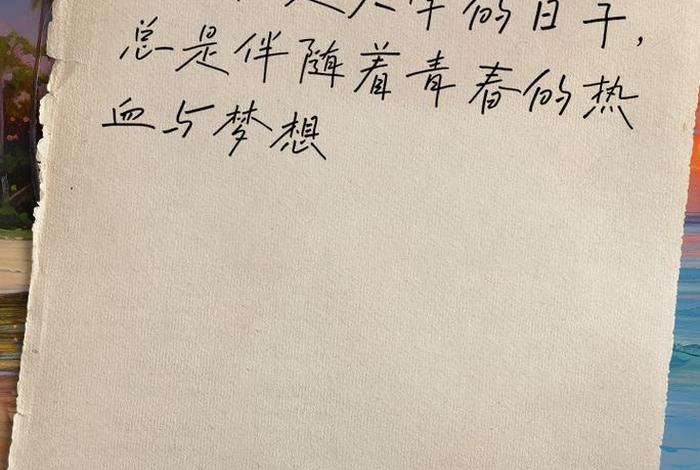 的日子，
总是伴随着青春的热
血与梦想